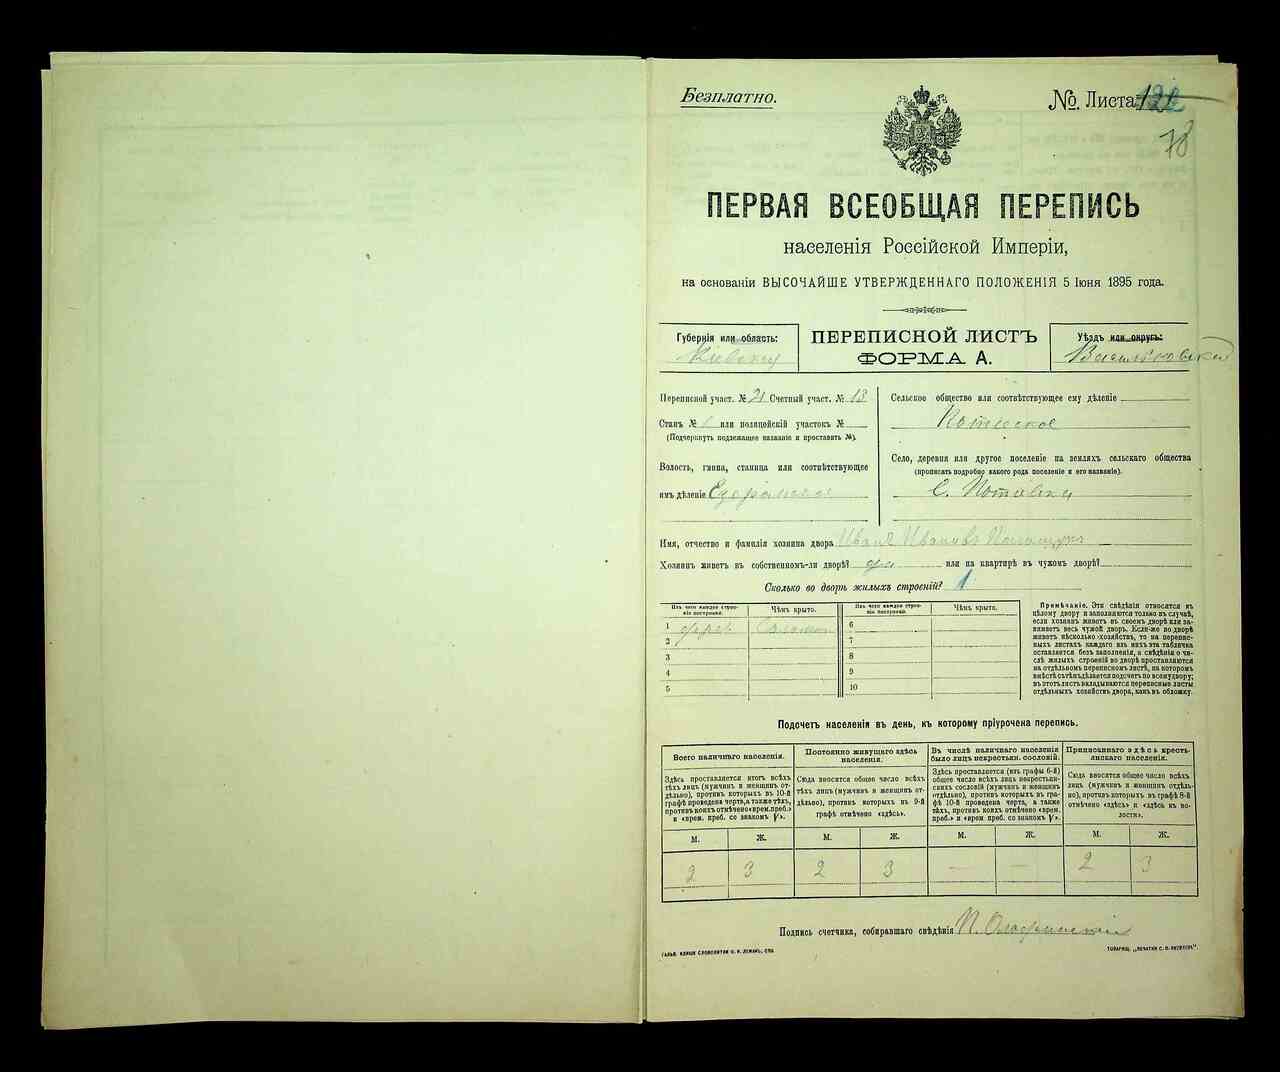 Безплатно.
№ Листа 122
78
ПЕРВАЯ ВСЕОБЩАЯ ПЕРЕПИСЬ
населенія Россійской Имперіи,
на основаніи ВЫСОЧАЙШЕ УТВЕРЖДЕННАГО ПОЛОЖЕНІЯ 5 Іюня 1895 года.
Губернія или область:
ПЕРЕПИСНОЙ ЛИСТЪ
ФОРМА А.
Уѣздъ или округъ:
Васильковскій
Переписной участ. № 21 Счетный участ. № 13
Станъ № 1 или полицейскій участокъ №
(Подчеркнуть подлежащее названіе и проставить №).
Волость, гмина, станица или соотвѣтствующее
имъ дѣленіе
Сельское общество или соотвѣтствующее ему дѣленіе
Село, деревня или другое поселеніе на земляхъ сельскаго общества
(прописать подробно какого рода поселеніе и его названіе).
С. Потіевка
Имя, отчество и фамилія хозяина двора Иванъ Ивановъ
Хозяинъ живетъ въ собственномъ-ли дворѣ? да или на квартирѣ въ чужомъ дворѣ?
Сколько во дворѣ жилыхъ строеній? 1
Изъ чего каждое строеніе построено.
Чѣмъ крыто.
Изъ чего каждое строеніе построено.
Чѣмъ крыто.
1 дерев. Соломой
2
3
4
5
6
7
8
9
10
Примѣчаніе. Эти свѣдѣнія относятся къ
цѣлому двору и заполняются только въ случаѣ,
если хозяинъ живетъ въ своемъ дворѣ или за-
нимаетъ весь чужой дворъ. Если-же во дворѣ
живетъ нѣсколько хозяйствъ, то на перепис-
ныхъ листахъ каждаго изъ нихъ эта табличка
оставляется безъ заполненія, а свѣдѣнія о чи-
слѣ жилыхъ строеній во дворѣ проставляются
на отдѣльномъ переписномъ листѣ, на которомъ
вмѣстѣ съ тѣмъ дѣлается подсчетъ по всему двору;
въ этотъ листъ вкладываются переписные листы
отдѣльныхъ хозяйствъ двора, какъ въ обложку.
Подсчетъ населенія въ день, къ которому пріурочена перепись.
Всего наличнаго населенія.
Здѣсь проставляется итогъ всѣхъ
тѣхъ лицъ (мужчинъ и женщинъ от-
дѣльно), противъ которыхъ въ 10-й
графѣ проведена черта, а также тѣхъ,
противъ коихъ отмѣчено «врем. преб.»
и «врем. преб. со знакомъ V».
Постоянно живущаго здѣсь
населенія.
Сюда вносится общее число всѣхъ
тѣхъ лицъ (мужчинъ и женщинъ от-
дѣльно), противъ которыхъ въ 9-й
графѣ отмѣчено «здѣсь».
Въ числѣ наличнаго населенія
было лицъ некрестьян. сословій.
Здѣсь проставляется (изъ графы 6-й)
общее число всѣхъ лицъ некрестьян-
скихъ сословій (мужчинъ и женщинъ
отдѣльно), противъ которыхъ въ гра-
фѣ 10-й проведена черта, а также
тѣхъ, противъ коихъ отмѣчено «врем.
преб.» и «врем. преб. со знакомъ V».
Приписаннаго здѣсь кресть-
янскаго населенія.
Сюда вносится общее число всѣхъ
лицъ (мужчинъ и женщинъ отдѣль-
но), противъ которыхъ въ графѣ 8-й
отмѣчено «здѣсь» и «здѣсь въ во-
лости».
М. Ж. М. Ж. М. Ж. М. Ж.
2 3 2 3 — — 2 3
Подпись счетчика, собиравшаго свѣдѣнія